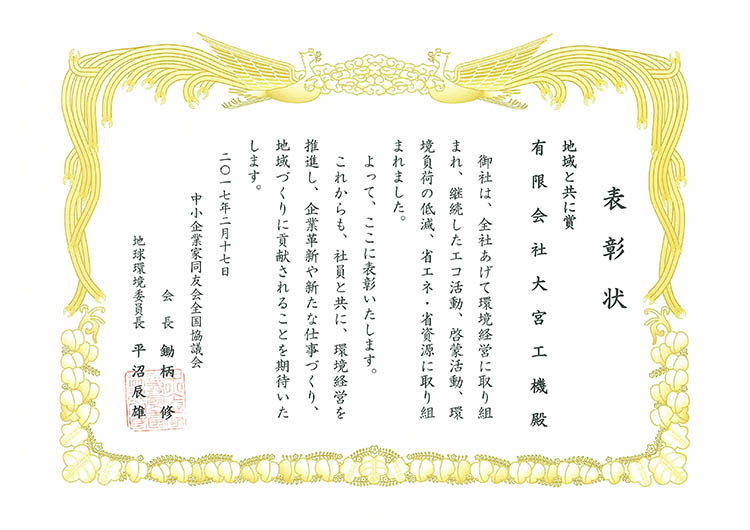 表彰状
地域と共に賞
有限会社大宮工機殿
御社は、全社あげて環境経営に取り組
まれ、継続したエコ活動、啓蒙活動、環
境負荷の低減、省エネ・省資源に取り組
まれました。
よって、ここに表彰いたします。
これからも、社員と共に、環境経営を
推進し、企業革新や新たな仕事づくり、
地域づくりに貢献されることを期待いた
します。
二〇一七年二月十七日
中小企業家同友会全国協議会
会長 鋤柄 修
地球環境委員長 平沼辰雄